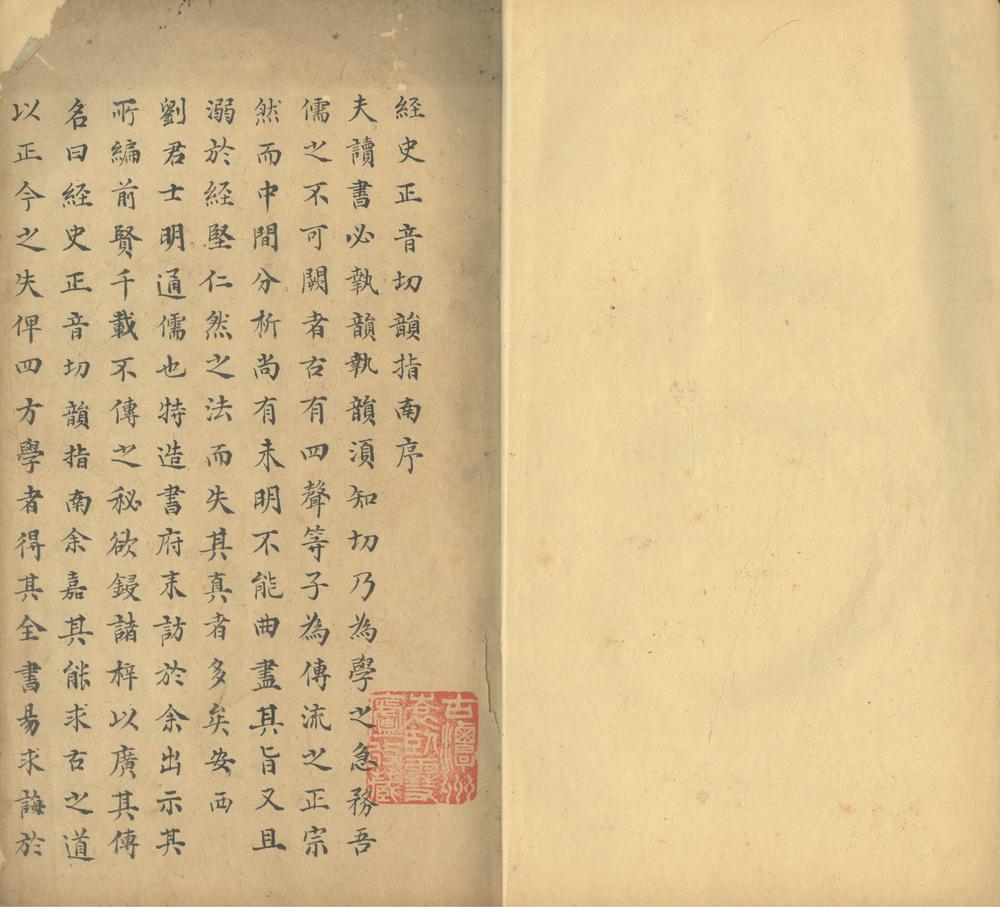 経史正音切韻指南序
夫讀書必執韻執韻湏知切乃為學之急務吾
儒之不可闕者古有四聲等子為傳流之正宗
然而中間分析尚有未明不能曲盡其旨又且
溺於経堅仁然之法而失其真者多矣安西
劉君士明通儒也特造書府来訪於余出示其
所編前賢千載不傳之秘欲鋟諸梓以廣其傳
名曰経史正音切韻指南余嘉其能求古之道
以正今之失俾四方學者得其全書易求誨於